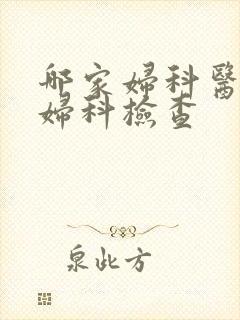 邮家婦科醫
婦科檢查
泉此方